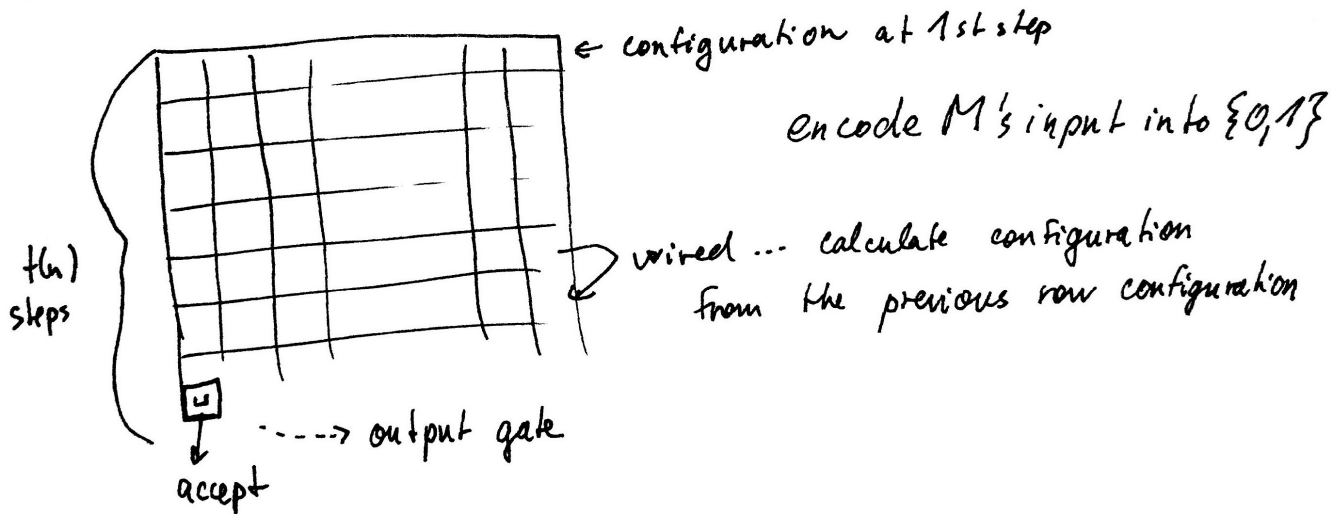 ← configuration at 1st step
encode M's input into {0,1}
t(n)
steps
wired ... calculate configuration
from the previous row configuration
⊔
----> output gate
accept